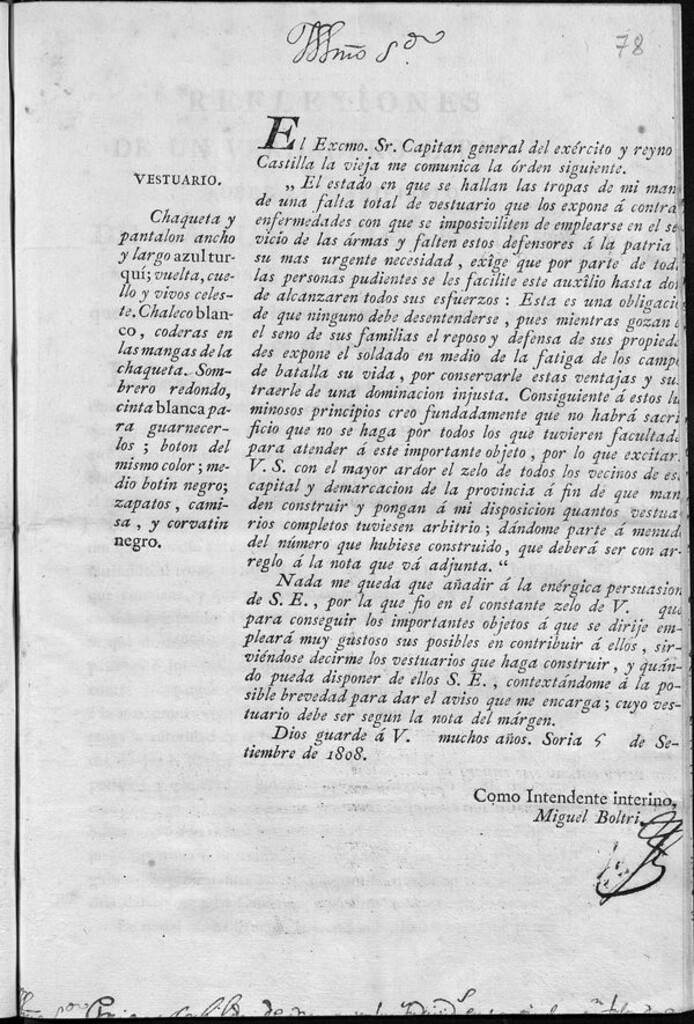 Yllmo Sor
78
El Excmo. Sr. Capitan general del exército y reyno
Castilla la vieja me comunica la órden siguiente.
„ El estado en que se hallan las tropas de mi man
de una falta total de vestuario que los expone á contra
enfermedades con que se imposiviliten de emplearse en el se
vicio de las ármas y falten estos defensores á la patria
su mas urgente necesidad, exige que por parte de tod
las personas pudientes se les facilite este auxîlio hasta don
de alcanzaren todos sus esfuerzos : Esta es una obligacio
de que ninguno debe desentenderse, pues mientras gozan e
el seno de sus familias el reposo y defensa de sus propieda
des expone el soldado en medio de la fatiga de los camp
de batalla su vida, por conservarle estas ventajas y su
traerle de una dominacion injusta. Consiguiente á estos lu
minosos principios creo fundadamente que no habrá sacri
ficio que no se haga por todos los que tuvieren facultade
para atender á este importante objeto, por lo que excitar
V. S. con el mayor ardor el zelo de todos los vecinos de es
capital y demarcacion de la provincia á fin de que man
den construir y pongan á mi disposicion quantos vestua
rios completos tuviesen arbitrio; dándome parte á menud
del número que hubiese construido, que deberá ser con ar-
reglo á la nota que vá adjunta. “
Nada me queda que añadir á la enérgica persuasion
de S. E., por la que fio en el constante zelo de V. que
para conseguir los importantes objetos á que se dirije em-
pleará muy gustoso sus posibles en contribuir á ellos, sir-
viéndose decirme los vestuarios que haga construir, y quán-
do pueda disponer de ellos S. E., contextándome á la po-
sible brevedad para dar el aviso que me encarga; cuyo ves-
tuario debe ser segun la nota del márgen.
Dios guarde á V. muchos años. Soria 5 de Se-
tiembre de 1808.
Como Intendente interino,
Miguel Boltri.
VESTUARIO.
Chaqueta y
pantalon ancho
y largo azul tur-
quí; vuelta, cue-
llo y vivos celes-
te. Chaleco blan-
co, coderas en
las mangas de la
chaqueta. Som-
brero redondo,
cinta blanca pa-
ra guarnecer-
los ; boton del
mismo color; me-
dio botin negro;
zapatos, cami-
sa, y corvatin
negro.